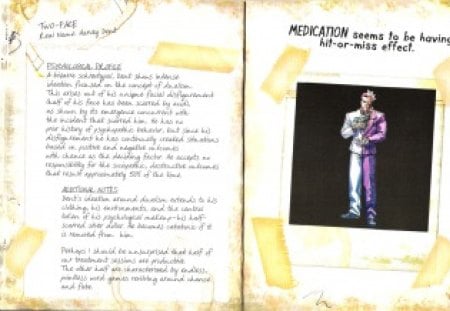 TWO-FACE
Real Name: Harvey Dent
PSYCHOLOGICAL PROFILE
A bizarre schizotypal, Dent shows intense
ideation focused on the concept of dualism.
This arises out of his unique facial disfigurement
(half of his face has been scarred by acid),
as shown by its emergence concurrent with
the incident that scarred him. He has no
prior history of psychopathic behavior, but since his
disfigurement he has continually created situations
based on positive and negative outcomes
with chance as the deciding factor. He accepts no
responsibility for the sociopathic, destructive outcomes
that result approximately 50% of the time.
ADDITIONAL NOTES
Dent's ideation around dualism extends to his
clothing, his environments, and the central
totem of his psychological makeup—his half-
scarred silver dollar. He becomes catatonic if it
is removed from him.
Perhaps I should be unsurprised that half of
our treatment sessions are productive.
The other half are characterized by endless,
pointless word games revolving around chance
and fate.
MEDICATION seems to be having
hit-or-miss effect.